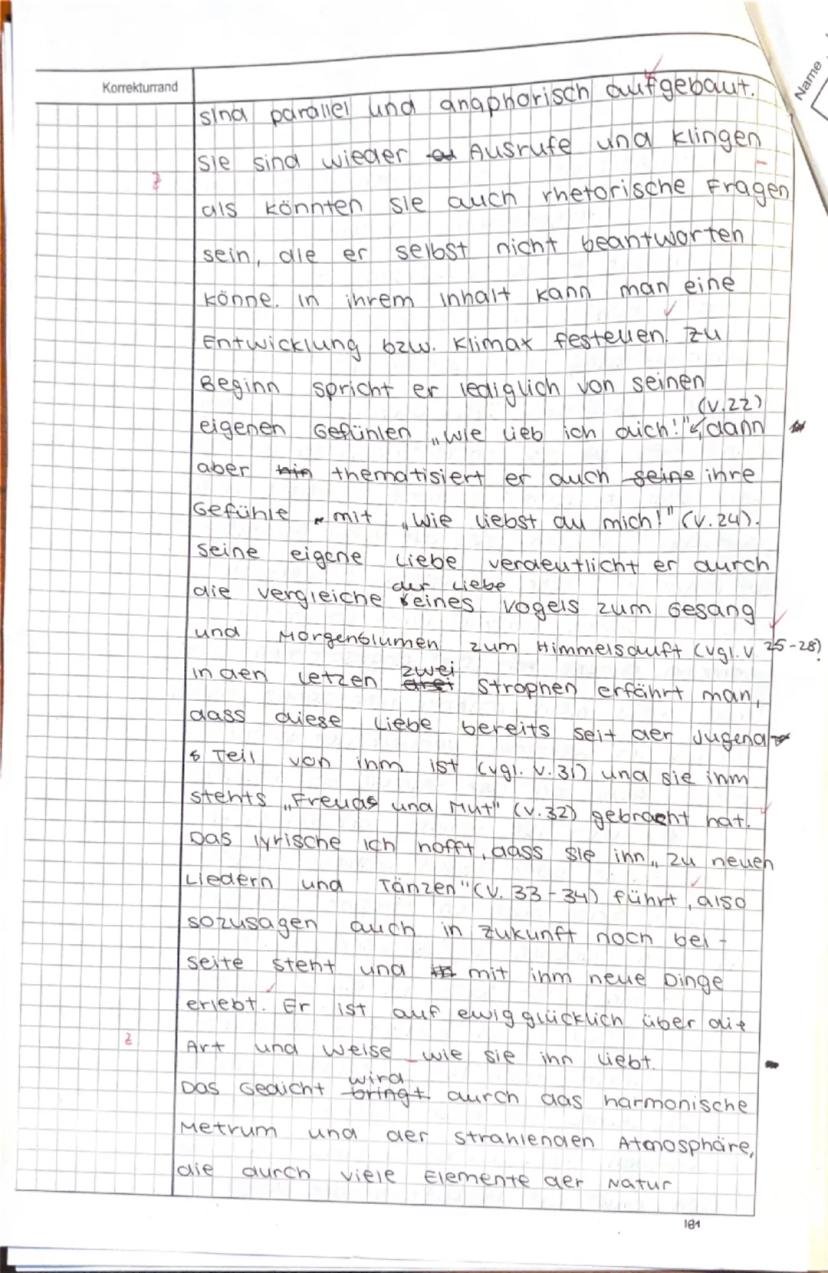 Korrekturrand
Name
sind parallel und anaphorisch aufgebaut.
Sie sind wieder Ausrufe und klingen
z
als könnten sie auch rhetorische Fragen
sein, die er selbst nicht beantworten
könne. In ihrem Inhalt kann man eine
Entwicklung bzw. Klimax festellen. Zu
Beginn spricht er lediglich von seinen
(V.22)
eigenen Gefühlen „wie lieb ich dich!" dann
aber hin thematisiert er auch seine ihre
Gefühle mit „wie liebst du mich!" (V.24).
Seine eigene Liebe verdeutlicht er durch
der Liebe
die Vergleiche eines Vogels zum Gesang
und Morgenblumen zum Himmelsduft (vgl. V 25-28)
zwei
In den letzen drei Strophen erfährt man,
dass diese Liebe bereits seit der Jugend
Teil von ihm ist (vgl. V.31) und sie ihm
stehts „Freude und Mut" (V.32) gebracht hat.
Das lyrische Ich hofft, dass sie ihn „zu neuen
Liedern und Tänzen" (V. 33-34) führt, also
sozusagen auch in Zukunft noch bei-
seite steht und mit ihm neue Dinge
erlebt. Er ist auf ewig glücklich über die
z
Art und Weise wie sie ihn liebt.
wird
Das Gedicht bringt durch das harmonische
Metrum und der strahlenden Atmosphäre,
die durch viele Elemente der Natur
181